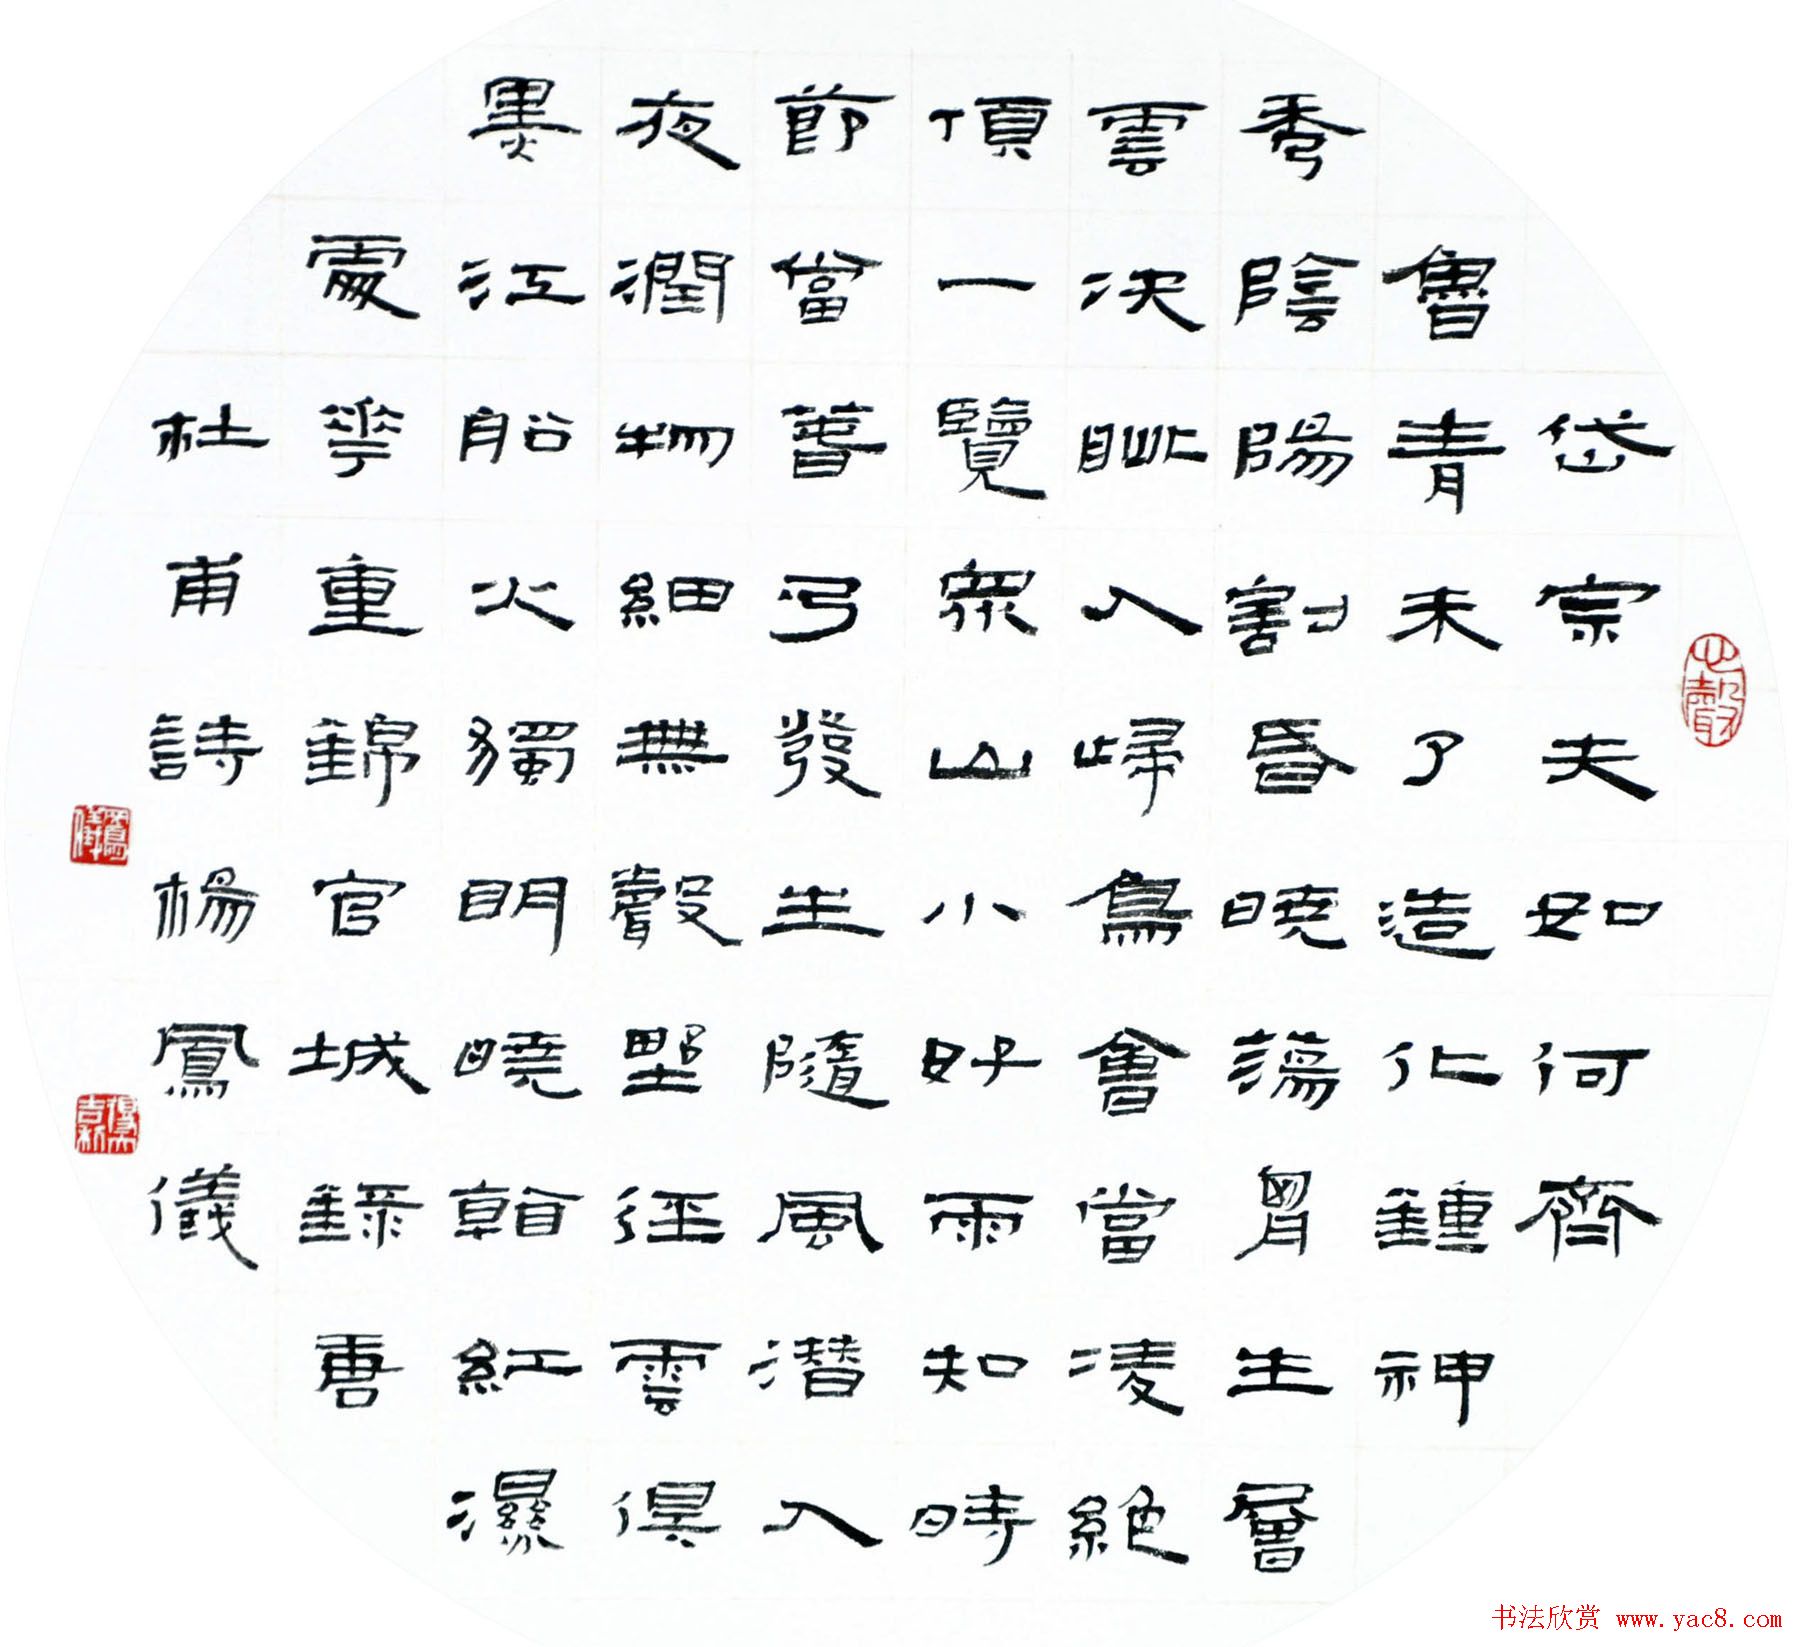 岱宗夫如何齊
魯青未了造化鍾神
秀陰陽割昏曉蕩胷生層
雲决眦入歸鳥會當凌絕
頂一覽衆山小好雨知時
節當春乃發生隨風潛入
夜潤物細無聲野徑雲俱
黑江船火獨明曉看紅濕
處花重錦官城錄唐
杜甫詩楊鳳儀
心聲
鳳儀
书法欣赏 www.yac8.com